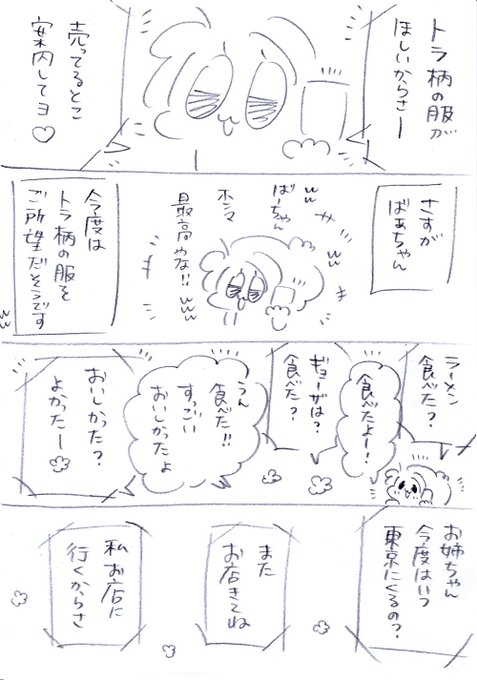 トラ柄の服が
ほしいからさー
売ってるとこ
案内してヨ♡
さすが
ばぁちゃん
ww
ばーちゃん
ホンマ
最高やな!!
www
ww
今度は
トラ柄の服を
ご所望だそうです
ww
ラーメン
食べた?
食べたよー!
ギョーザは?
食べた?
うん
食べた!!
すっごい
おいしかったよ
おいしかった?
よかったー
お姉ちゃん
今度はいつ
東京にくるの?
また
お店きてね
私お店に
行くからさ